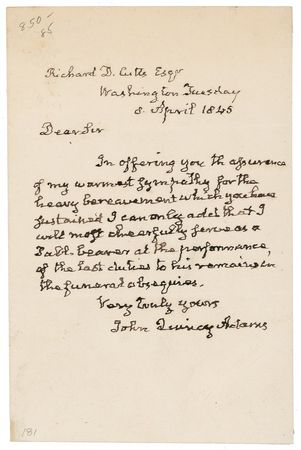 850-
85
Richard D. Cutts Esqr
Washington Tuesday
8 April 1845
Dear Sir
In offering you the assurance
of my warmest sympathy for the
heavy bereavement which you have
sustained I can only add that I
will most chearfully serve as a
Pall-bearer at the performance,
of the last duties to his remains in
the funeral obsequies.
Very truly yours
John Quincy Adams
181